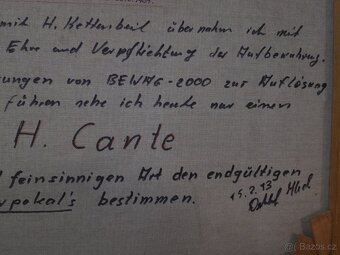 mit H. Kettenbeil übernahm ich mit
Ehre und Verpflichtung der Aufbewahrung.
ungen von BEWAG-2000 zur Auflösung
führen sehe ich heute nur einen
H. Cante
feinsinnigen Art den endgültigen
pokal's bestimmen.
15.2.13